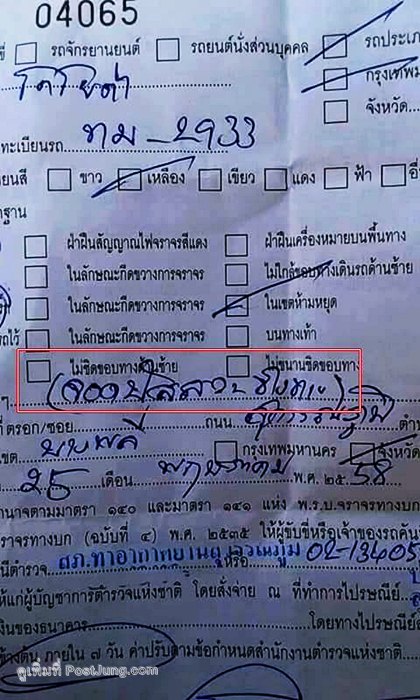 04065
รถจักรยานยนต์ รถยนต์นั่งส่วนบุคคล รถประเภ
โตโยต้า กรุงเทพม
จังหวัด...
ทะเบียนรถ ทม-2933
ขาว เหลือง เขียว แดง ฟ้า
ฐาน
ฝ่าฝืนสัญญาณไฟจราจรสีแดง ฝ่าฝืนเครื่องหมายบนพื้นทาง
ในลักษณะกีดขวางการจราจร ไม่ใกล้ขอบทางเดินรถด้านซ้าย
ในลักษณะกีดขวางการจราจร ในเขตห้ามหยุด
ในลักษณะกีดขวางการจราจร บนทางเท้า
ไม่ชิดขอบทางด้านซ้าย ไม่ขนานชิดขอบทาง
ที่ ตรอก/ซอย ถนน
เขต บางพลี กรุงเทพมหานคร จังหวัด
25 เดือน พฤษภาคม พ.ศ. ๒๕ 58
นาจตามมาตรา ๑๔๐ และมาตรา ๑๔๑ แห่ง พ.ร.บ.จราจรทางบก
จราจรทางบก (ฉบับที่ ๔) พ.ศ. ๒๕๓๕ ให้ผู้ขับขี่หรือเจ้าของรถคัน
นีตำรวจ สภ.ท่าอากาศยานสุวรรณภูมิ 02-13405
หรือ
ให้แก่ผู้บัญชาการตำรวจแห่งชาติ โดยสั่งจ่าย ณ ที่ทำการไปรษณีย์
เงินของธนาคาร โดยทางไปรษณีย์
ข้างต้น ภายใน ๗ วัน ค่าปรับตามข้อกำหนดสำนักงานตำรวจแห่งชาติ
ดูเพิ่มที่ PostJung.com